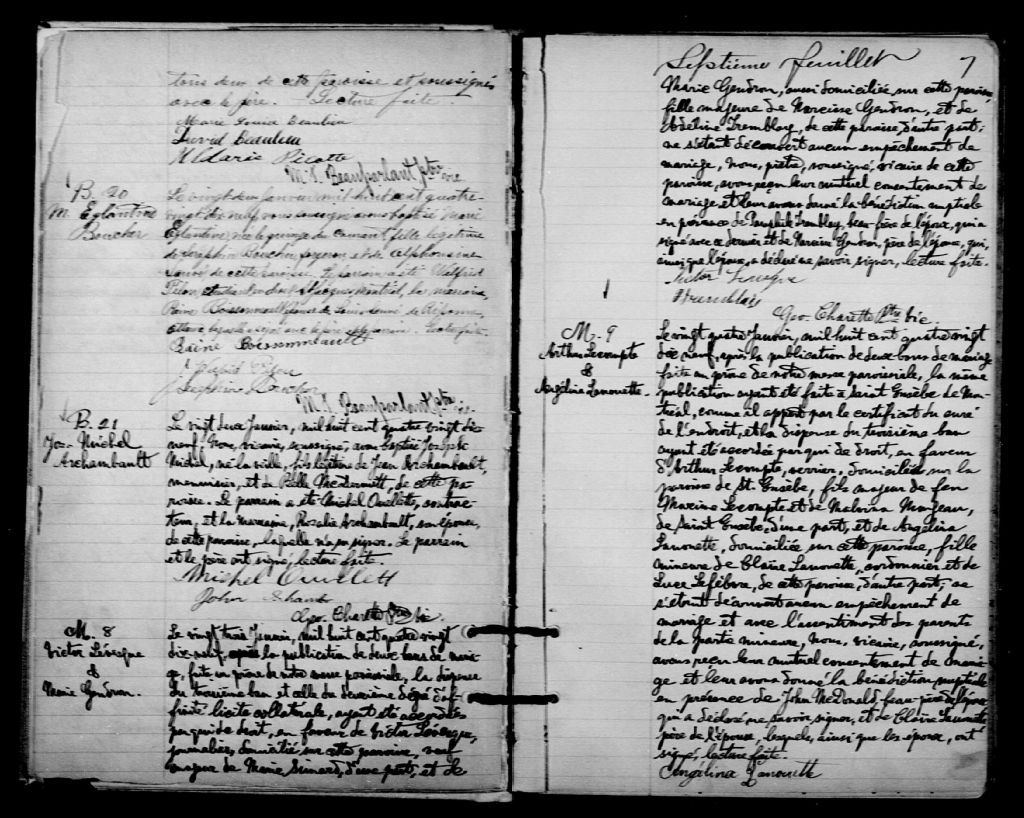 tous deux de cette paroisse et soussignés
avec le père. Lecture faite.
Marie Louise Beaulieu
David Beaulieu
M. T. Beauparlant ptre vic
B. 20
M. Eglantine
Boucher
Le vingt deux janvier mil huit cent quatre-
vingt dix neuf nous soussigné avons baptisé Marie
Eglantine, née le quinze du courant, fille légitime
de Joseph Boucher et de Alphonsine
de cette paroisse. Le parrain a été Wilfrid
Pilon, St Jacques Montréal, la marraine,
Reine Boissonneault
avec le père Lecture faite.
Reine Boissonneault
Pilon
Boucher
M. T. Beauparlant ptre vic.
B. 21
Jos. Michel
Archambault
Le vingt deux Janvier, mil huit cent quatre vingt dix
neuf, Nous, vicaire, soussigné, avons baptisé Joseph
Michel, né la veille, fils légitime de Jean Archambault,
menuisier, et de McDermett, de cette pa
roisse. Le parrain a été Michel Ouellette, contrac-
teur, et la marraine, Rosalie Archambault, son épouse,
de cette paroisse, laquelle n'a pu signer. Le parrain
et le père ont signé, lecture faite.
Michel Ouellett
John
Geo. Charette Ptre vic
M. 8
Victor Lévesque
&
Marie Gendron.
Le vingt trois Janvier, mil huit cent quatre vingt
dix-neuf, après la publication de deux bans de maria-
ge, faite au prône de notre messe paroissiale, la dispense
du troisième ban et celle du deuxième degré d'af-
finité licite collatérale, ayant été accordées
par qui de droit, en faveur de Victor Lévesque,
journalier, domicilié sur cette paroisse, veuf
majeur de Marie Simard, d'une part, et de
Septième feuillet 7
Marie Gendron, aussi domiciliée sur cette paroisse,
fille majeure de Narcisse Gendron, et de
Adeline Tremblay, de cette paroisse d'autre part;
ne s'étant découvert aucun empêchement de
mariage, Nous, prêtre, soussigné, vicaire de cette
paroisse, avons reçu leur mutuel consentement de
mariage et leur avons donné la bénédiction nuptiale
en présence de Tremblay, beau-frère de l'époux, qui a
signé avec ce dernier et de Narcisse Gendron, père de l'épouse, qui,
ainsi que l'épouse, a déclaré ne savoir signer, lecture faite.
Victor Levesque
Geo. Charette Ptre vic.
M. 9
Arthur Lecompte
&
Angélina Lanouette.
Le vingt quatre Janvier, mil huit cent quatre vingt
dix neuf, après la publication de deux bans de mariage
faite au prône de notre messe paroissiale, la même
publication ayant été faite à Saint Eusèbe de Mon-
tréal, comme il appert par le certificat du curé
de l'endroit, et la dispense du troisième ban
ayant été accordée par qui de droit, en faveur
d'Arthur Lecompte, verrier, domicilié sur la
paroisse de St. Eusèbe, fils majeur de feu
Maxime Lecompte et de Malvina Mongeau,
de Saint Eusèbe, d'une part, et de Angélina
Lanouette, domiciliée sur cette paroisse, fille
mineure de Elaïre Lanouette, cordonnier et de
Luce Lefebvre, de cette paroisse, d'autre part; ne
s'étant découvert aucun empêchement de
mariage et avec l'assentiment des parents
de la partie mineure, Nous, vicaire, soussigné,
avons reçu leur mutuel consentement de maria-
ge et leur avons donné la bénédiction nuptiale
en présence de John McDonald, beau-père de l'époux
qui a déclaré ne savoir signer, et de Elaïre Lanouette
père de l'épouse, lesquels, ainsi que les époux, ont
signé, lecture faite.
Angélina Lanouette